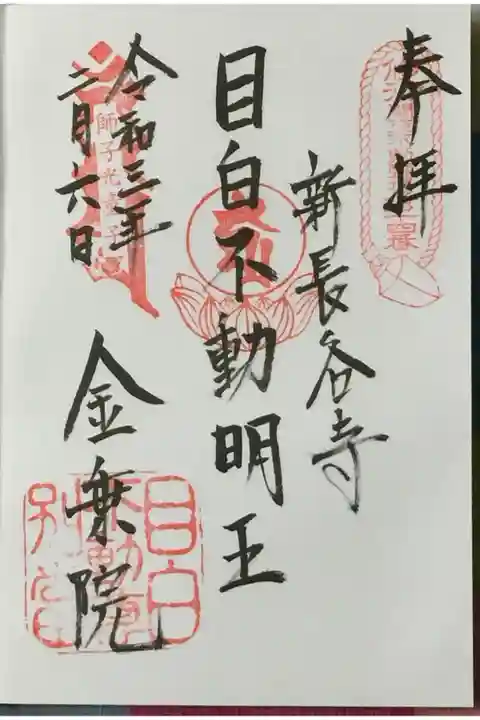 奉拝
新長谷寺
目白不動明王
令和三年
二月六日
師子光童子
金乗院
目白
不動尊
別當